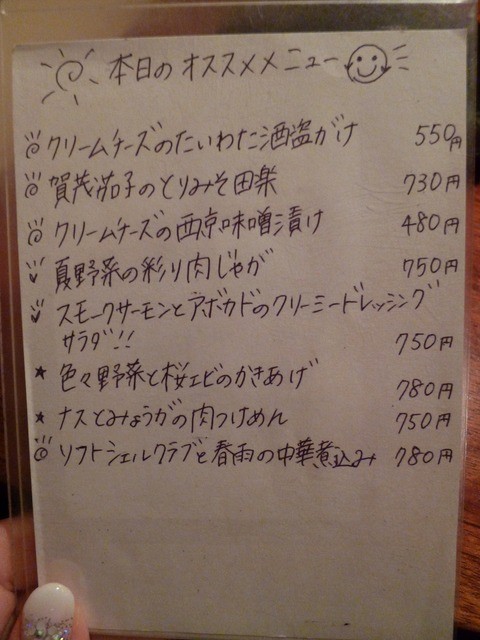 本日のオススメメニュー
クリームチーズのたいわた酒盗がけ 550円
賀茂茄子のとりみそ田楽 730円
クリームチーズの西京味噌漬け 480円
夏野菜の彩り肉じゃが 750円
スモークサーモンとアボカドのクリーミードレッシング
サラダ!! 750円
色々野菜と桜エビのかきあげ 780円
ナスとみょうがの肉つけめん 750円
ソフトシェルクラブと春雨の中華煮込み 780円